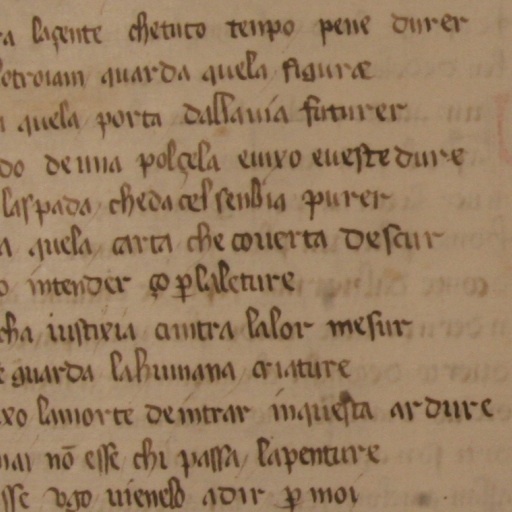 ra laçente chetuto tenpo pene durer
otroiam guarda quela figuræ
quela porta dallauia futurer
do de una polçela euixo eueste dure
laspada cheda cel senbia purer
a quela carta che couerta descur
o intender co ꝑ la leture
cha iustixia contra lalor mesur
e guarda lahumana criature
xo lamorte de intrar inquesta ardure
mai nō esse chi passa lapenture
sse ugo uienelo adir ꝑ moi